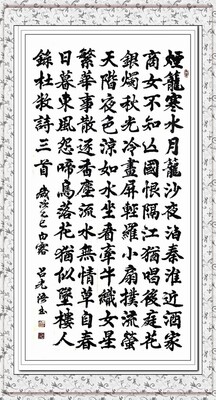 煙籠寒水月籠沙夜泊秦淮近酒家
商女不知亡國恨隔江猶唱後庭花
銀燭秋光冷畫屏輕羅小扇撲流螢
天階夜色涼如水坐看牽牛織女星
繁華事散逐香塵流水無情草自春
日暮東風怨啼鳥落花猶似墜樓人
錄杜牧詩三首 歲次乙巳白露 呂光書